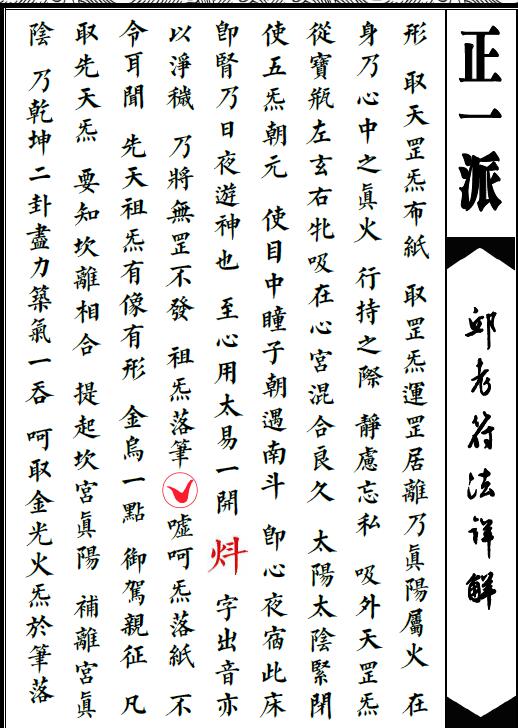 正一派
邱老符法详解
形　取天罡炁布紙　取罡炁運罡居離乃眞陽屬火　在
身乃心中之眞火　行持之際　靜慮忘私　吸外天罡炁
從寶瓶左玄右牝吸在心宮混合良久　太陽太陰緊閉
使五炁朝元　使目中瞳子朝遇南斗　卽心夜宿此床
卽腎乃日夜遊神也　至心用太易一開　炓　字出音亦
以淨穢　乃將無罡不發　祖炁落筆　噓呵炁落紙　不
令耳聞　先天祖炁有像有形　金烏一點　御駕親征　凡
取先天炁　要知坎離相合　提起坎宮眞陽　補離宮眞
陰　乃乾坤二卦盡力築氣一吞　呵取金光火炁於筆落